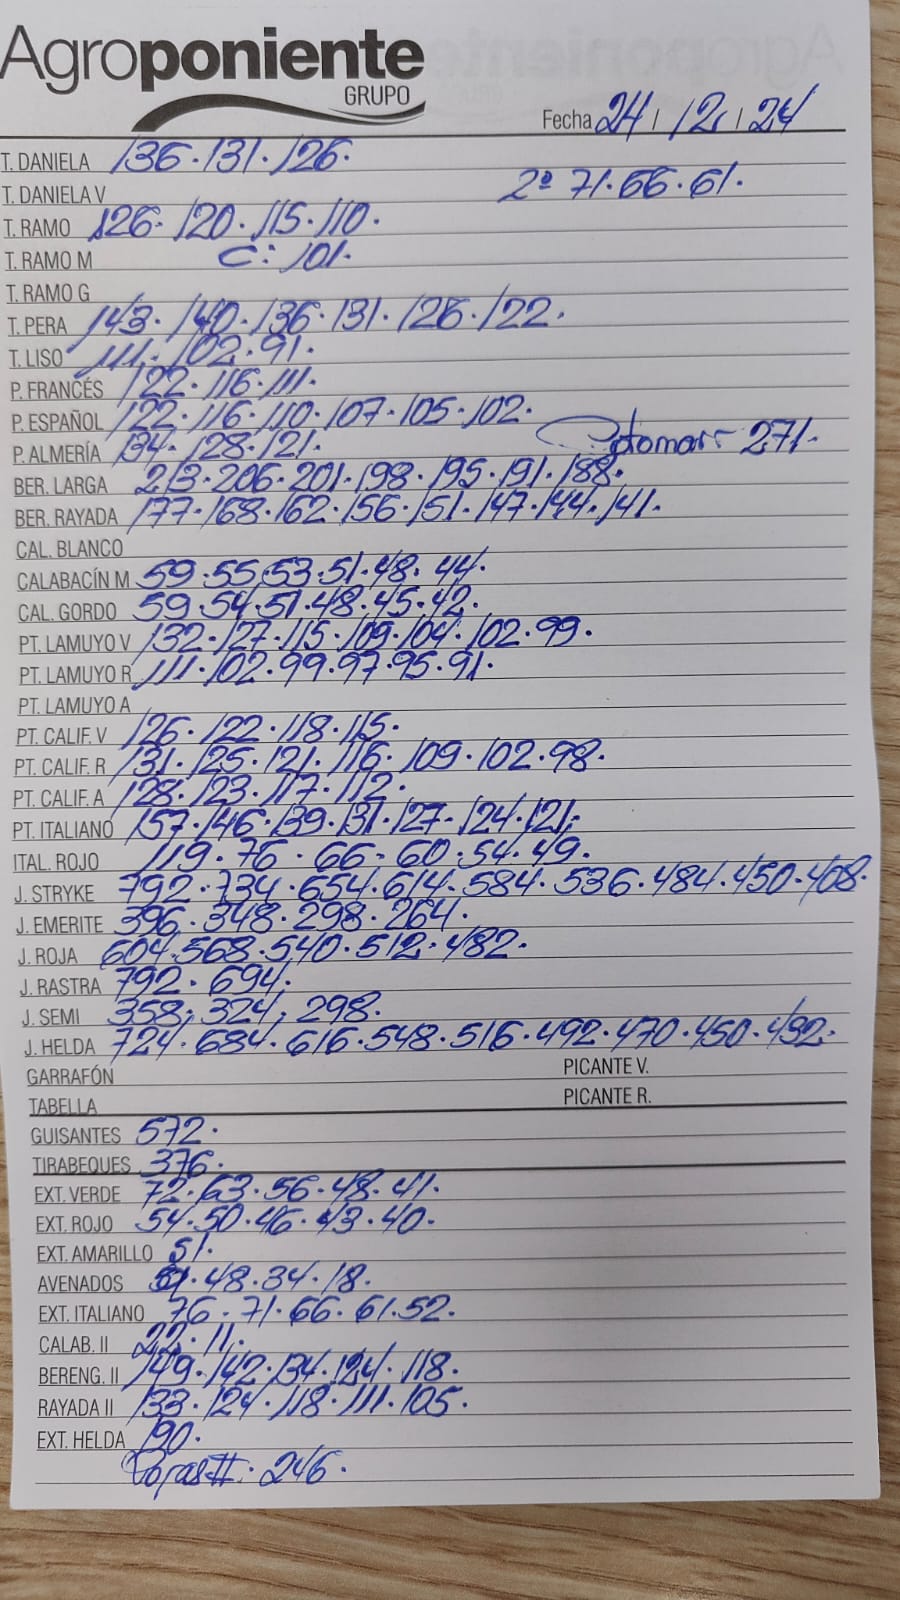 Agroponiente
GRUPO
Fecha 24 / 12 / 24
T. DANIELA 136. 131. 126.
T. DANIELA V 2ª 71. 66. 61.
T. RAMO 126. 120. 115. 110.
T. RAMO M C: 101.
T. RAMO G
T. PERA 143. 140. 136. 131. 126. 122.
T. LISO 111. 102. 91.
P. FRANCÉS 122. 116. 111.
P. ESPAÑOL 122. 116. 110. 107. 105. 102.
P. ALMERÍA 134. 128. 121. 271.
BER. LARGA 213. 206. 201. 198. 195. 191. 188.
BER. RAYADA 177. 168. 162. 156. 151. 147. 144. 141.
CAL. BLANCO
CALABACÍN M 59. 55. 53. 51. 48. 44.
CAL. GORDO 59. 54. 51. 48. 45. 42.
PT. LAMUYO V 132. 127. 115. 109. 104. 102. 99.
PT. LAMUYO R 111. 102. 99. 97. 95. 91.
PT. LAMUYO A
PT. CALIF. V 126. 122. 118. 115.
PT. CALIF. R 131. 125. 121. 116. 109. 102. 98.
PT. CALIF. A 128. 123. 117. 112.
PT. ITALIANO 157. 146. 139. 131. 127. 124. 121.
ITAL. ROJO 119. 76. 66. 60. 54. 49.
J. STRYKE 792. 734. 654. 614. 584. 536. 484. 450. 408.
J. EMERITE 396. 348. 298. 264.
J. ROJA 604. 568. 540. 512. 482.
J. RASTRA 792. 694.
J. SEMI 358. 324. 298.
J. HELDA 724. 684. 616. 548. 516. 492. 470. 450. 432.
GARRAFÓN PICANTE V.
TABELLA PICANTE R.
GUISANTES 572.
TIRABEQUES 376.
EXT. VERDE 72. 63. 56. 48. 41.
EXT. ROJO 54. 50. 46. 43. 40.
EXT. AMARILLO 51.
AVENADOS 48. 34. 18.
EXT. ITALIANO 76. 71. 66. 61. 52.
CALAB. II 22. 11.
BERENG. II 149. 142. 134. 124. 118.
RAYADA II 133. 124. 118. 111. 105.
EXT. HELDA 190.
246.